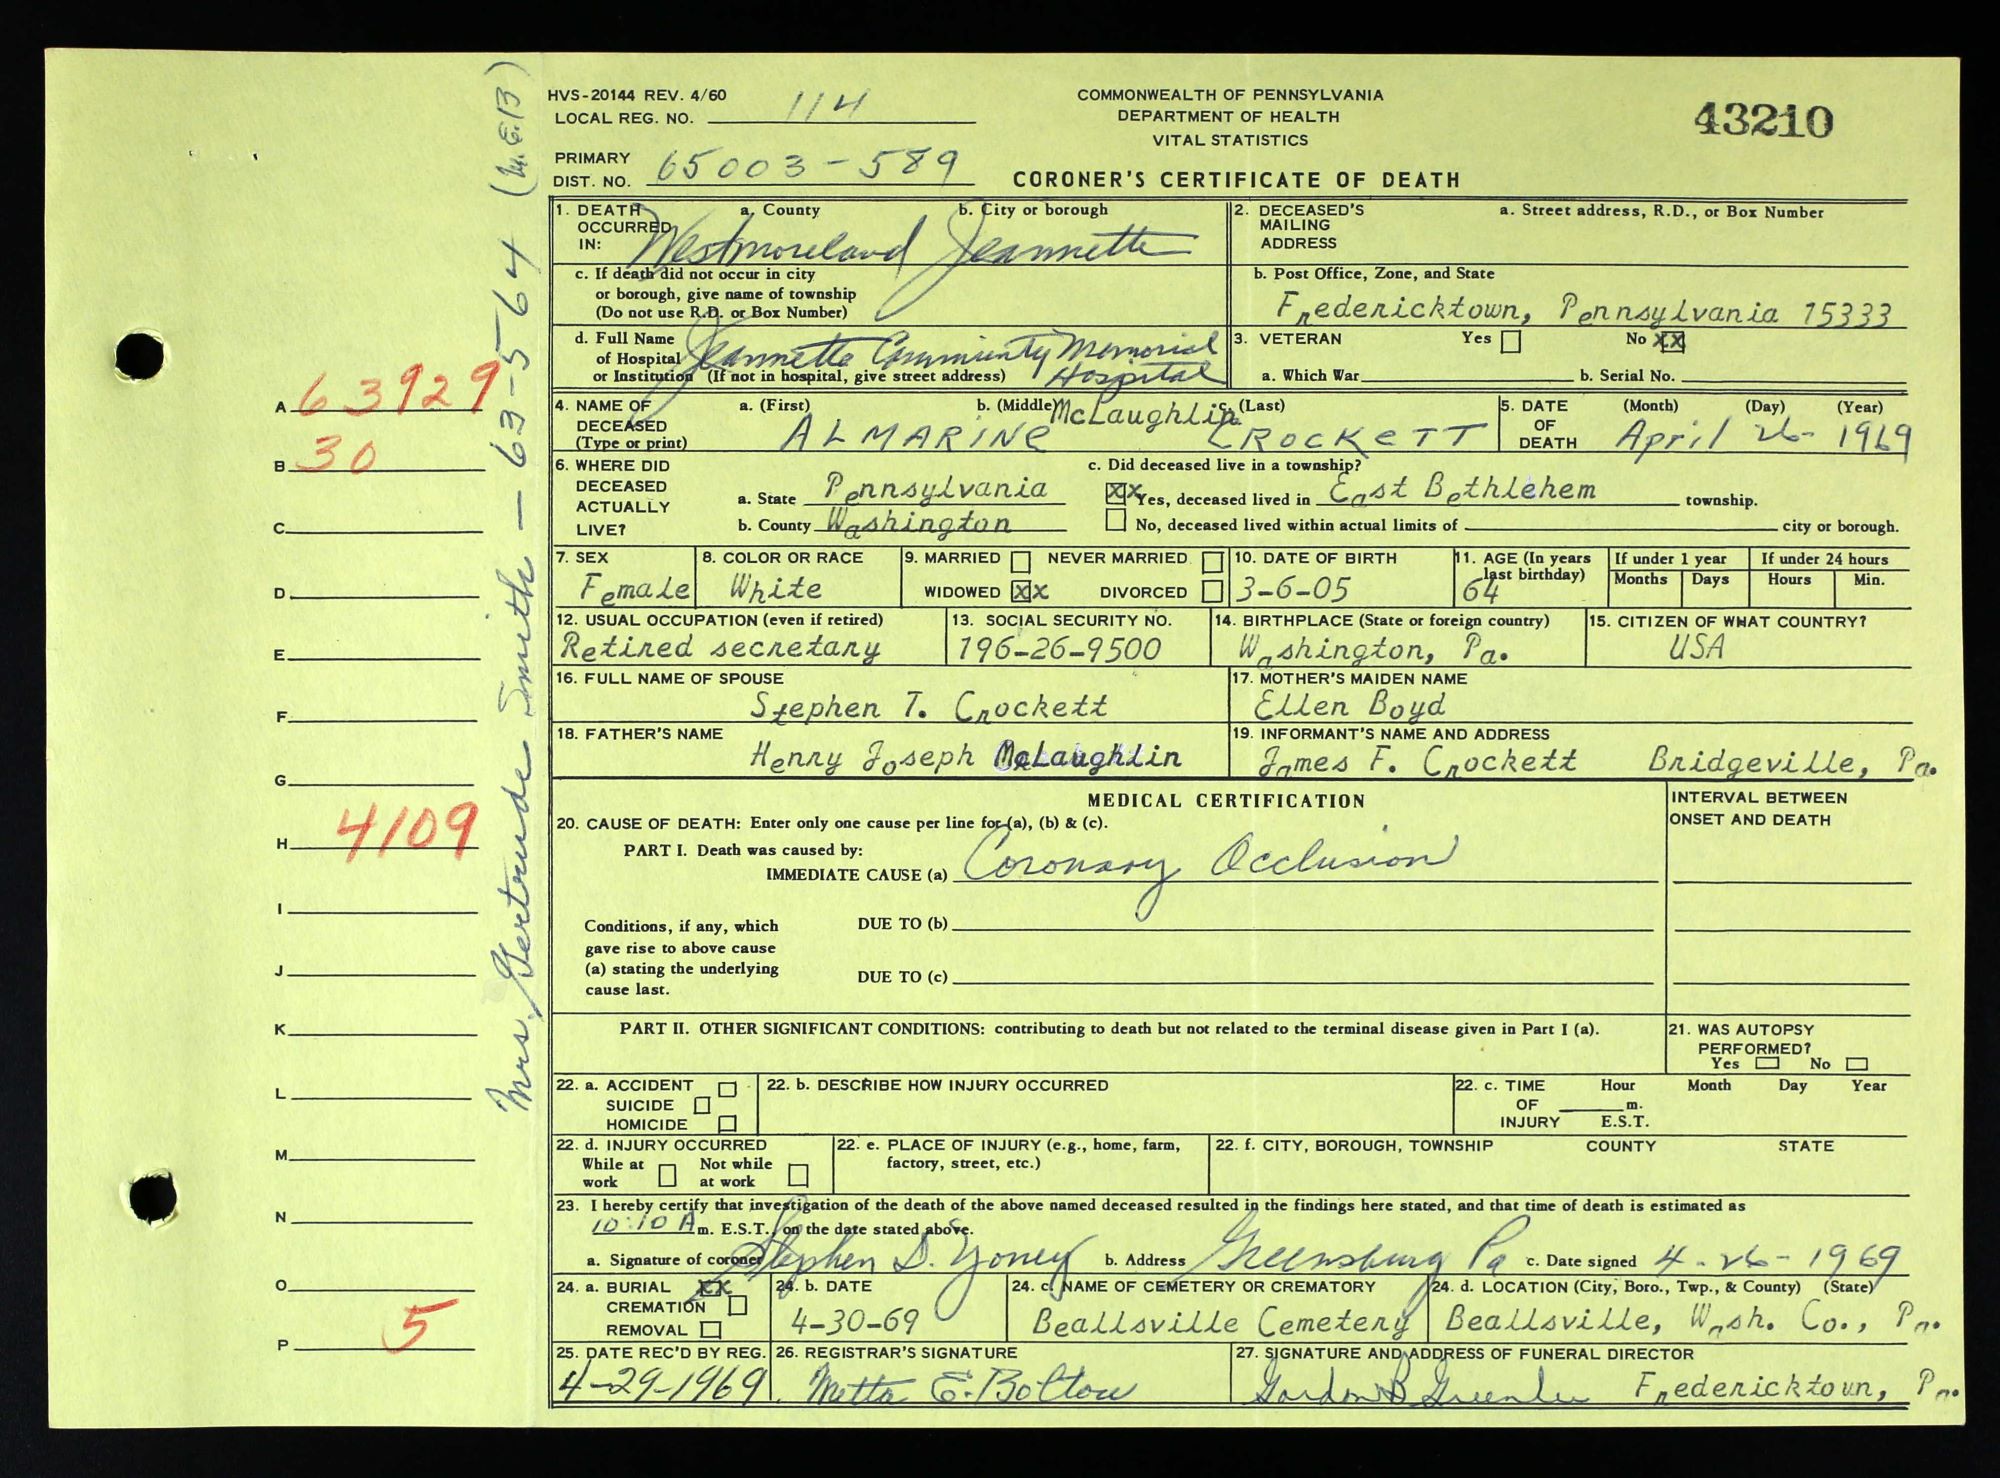 HVS-20144 REV. 4/60
LOCAL REG. NO. 114
COMMONWEALTH OF PENNSYLVANIA
DEPARTMENT OF HEALTH
VITAL STATISTICS
43210
PRIMARY
DIST. NO. 65003-589
CORONER'S CERTIFICATE OF DEATH
1. DEATH OCCURRED IN: a. County b. City or borough
Westmoreland Jeannette
2. DECEASED'S MAILING ADDRESS a. Street address, R.D., or Box Number
c. If death did not occur in city
or borough, give name of township
(Do not use R.D. or Box Number)
b. Post Office, Zone, and State
Fredericktown, Pennsylvania 15333
d. Full Name
of Hospital
or Institution (If not in hospital, give street address)
Jeannette Community Memorial
Hospital
3. VETERAN Yes No XX
a. Which War b. Serial No.
4. NAME OF DECEASED (Type or print) a. (First) b. (Middle) c. (Last)
McLaughlin
ALMARINE CROCKETT
5. DATE OF DEATH (Month) (Day) (Year)
April 26- 1969
6. WHERE DID DECEASED ACTUALLY LIVE?
a. State Pennsylvania
b. County Washington
c. Did deceased live in a township?
XX Yes, deceased lived in East Bethlehem township.
No, deceased lived within actual limits of city or borough.
7. SEX
Female
8. COLOR OR RACE
White
9. MARRIED NEVER MARRIED
WIDOWED XX DIVORCED
10. DATE OF BIRTH
3-6-05
11. AGE (In years last birthday)
64
If under 1 year
Months Days
If under 24 hours
Hours Min.
12. USUAL OCCUPATION (even if retired)
Retired secretary
13. SOCIAL SECURITY NO.
196-26-9500
14. BIRTHPLACE (State or foreign country)
Washington, Pa.
15. CITIZEN OF WHAT COUNTRY?
USA
16. FULL NAME OF SPOUSE
Stephen T. Crockett
17. MOTHER'S MAIDEN NAME
Ellen Boyd
18. FATHER'S NAME
Henry Joseph McLaughlin
19. INFORMANT'S NAME AND ADDRESS
James F. Crockett Bridgeville, Pa.
MEDICAL CERTIFICATION
INTERVAL BETWEEN
ONSET AND DEATH
20. CAUSE OF DEATH: Enter only one cause per line for (a), (b) & (c).
PART I. Death was caused by:
IMMEDIATE CAUSE (a) Coronary Occlusion
Conditions, if any, which
gave rise to above cause
(a) stating the underlying
cause last.
DUE TO (b)
DUE TO (c)
PART II. OTHER SIGNIFICANT CONDITIONS: contributing to death but not related to the terminal disease given in Part I (a).
21. WAS AUTOPSY
PERFORMED?
Yes No
22. a. ACCIDENT
SUICIDE
HOMICIDE
22. b. DESCRIBE HOW INJURY OCCURRED
22. c. TIME OF INJURY Hour Month Day Year
m.
E.S.T.
22. d. INJURY OCCURRED
While at work Not while at work
22. e. PLACE OF INJURY (e.g., home, farm,
factory, street, etc.)
22. f. CITY, BOROUGH, TOWNSHIP COUNTY STATE
23. I hereby certify that investigation of the death of the above named deceased resulted in the findings here stated, and that time of death is estimated as
10:10 A m. E.S.T., on the date stated above.
a. Signature of coroner Stephen D. Yoney b. Address Greensburg Pa c. Date signed 4-26-1969
24. a. BURIAL XX
CREMATION
REMOVAL
24. b. DATE
4-30-69
24. c. NAME OF CEMETERY OR CREMATORY
Beallsville Cemetery
24. d. LOCATION (City, Boro., Twp., & County) (State)
Beallsville, Wash. Co., Pa.
25. DATE REC'D BY REG.
4-29-1969
26. REGISTRAR'S SIGNATURE
Metta E. Bolton
27. SIGNATURE AND ADDRESS OF FUNERAL DIRECTOR
Gordon B Greenlee Fredericktown, Pa.
A 63929
B 30
C
D
E
F
G
H 4109
I
J
K
L
M
N
O
P 5
Mrs. Gertrude Smith - 63-5-64 (M.E.B)